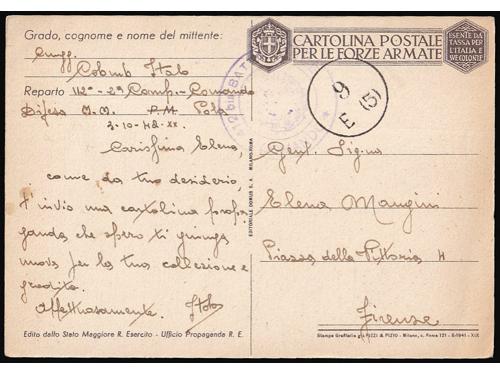 Grado, cognome e nome del mittente:
Colomb Italo
Reparto 112° - 2ª Comp. - Comando
Difesa M. M. P.M. Pola
3-10-42-XX.
Carissima Elena
come da tuo desiderio,
t'invio una cartolina propa-
ganda che spero ti giunga
nuova per la tua collezione e
gradita.
Affettuosamente Italo
Edito dallo Stato Maggiore R. Esercito - Ufficio Propaganda R. E.
EDITORIALE DOMUS S. A. MILANO-ROMA
CARTOLINA POSTALE
PER LE FORZE ARMATE
ESENTE DA
TASSA PER
L'ITALIA E
LE COLONIE
9
E (5)
Gent. Sig.na
Elena Mangini
Piazza della Vittoria 4
Firenze
Stampa Grafitalia già PIZZI & PIZIO - Milano, c. Roma 121 - E-1941 - XIX